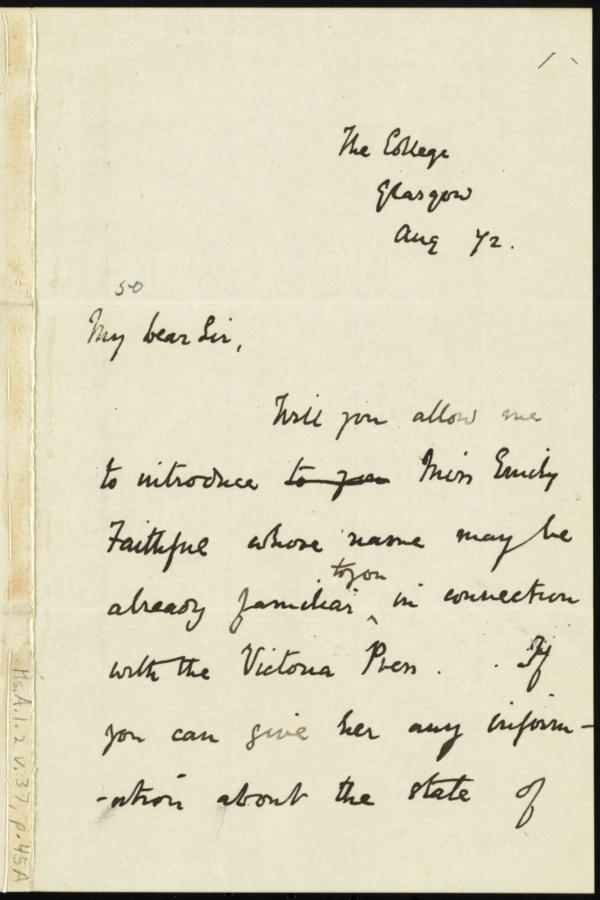 The College
Glasgow
Aug 72.
50
My dear Sir,
Will you allow me
to introduce to you Miss Emily
Faithful whose name may be
to you
already familiar ^ in connection
with the Victoria Press. If
you can give her any inform-
-ation about the state of
Ms.A.1.2 v.37, p.45A